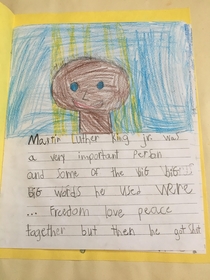 Martin luther king jr. was
a very important Person
and some of the BIG BIG...
BIG words he used were
... Freedom love peace
together but then he got shot